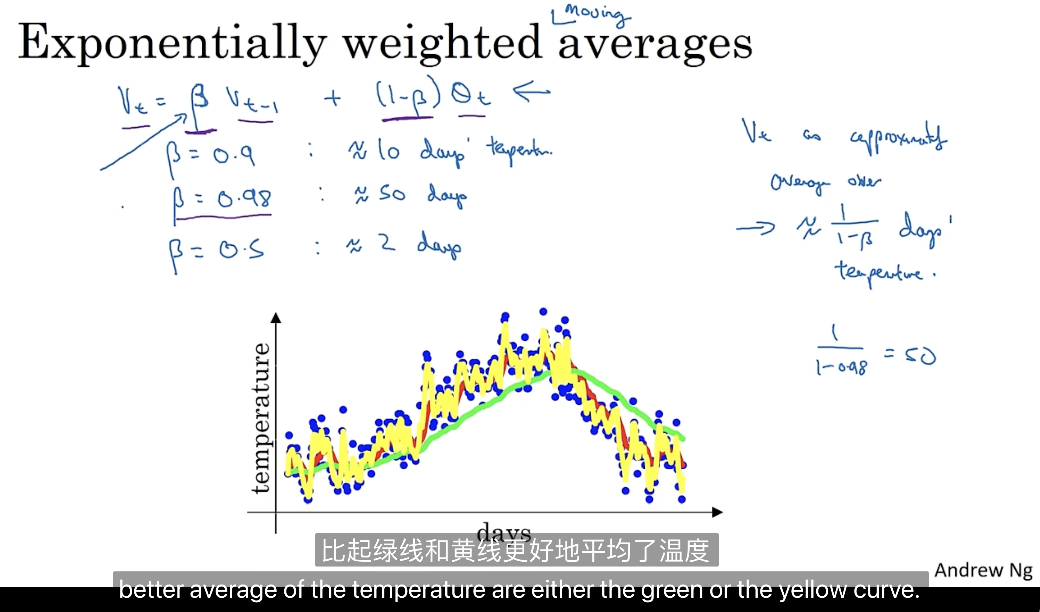 moving
Exponentially weighted averages
Vt = β Vt-1 + (1-β) θt ←
β = 0.9 : ≈ 10 days' temperature.
β = 0.98 : ≈ 50 days
β = 0.5 : ≈ 2 days
Vt as approximately
average over
→ ≈ 1/(1-β) days'
temperature.
1/(1-0.98) = 50
temperature
days
比起绿线和黄线更好地平均了温度
better average of the temperature are either the green or the yellow curve.
Andrew Ng